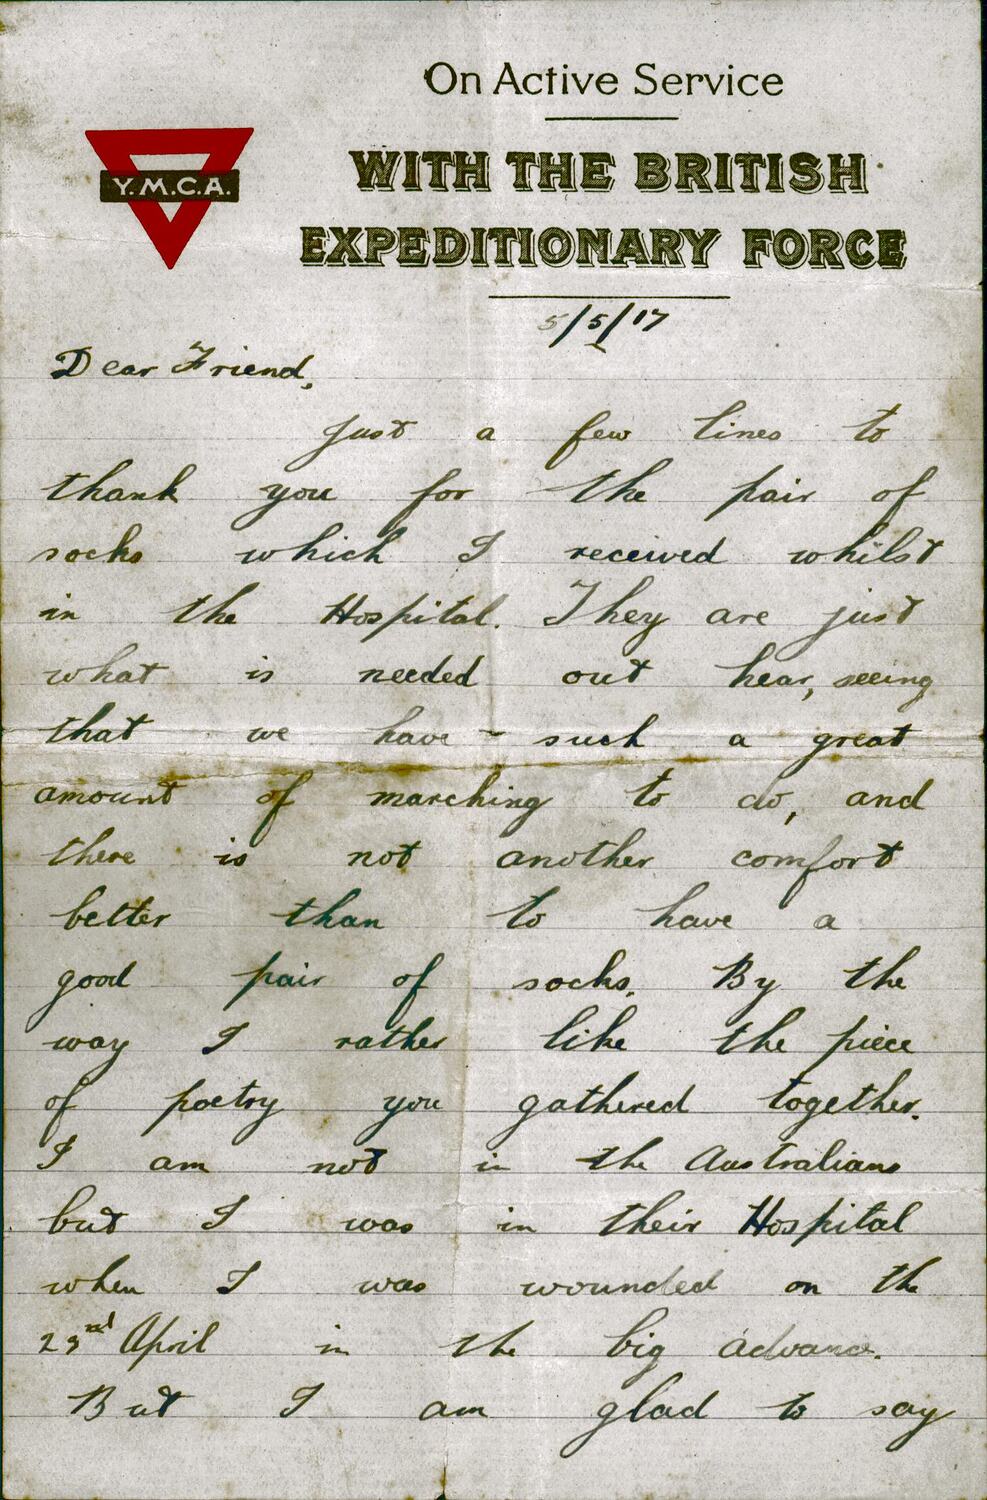 On Active Service
WITH THE BRITISH
Y.M.C.A.
EXPEDITIONARY FORCE
5/5/17
Dear Friend,
Just a few lines to
thank you for the pair of
socks which I received whilst
in the Hospital. They are just
what is needed out hear, seeing
that we have such a great
amount of marching to do, and
there is not another comfort
better than to have a
good pair of socks. By the
way I rather like the piece
of poetry you gathered together.
I am not in the Australians
but I was in their Hospital
when I was wounded on the
23rd April in the big advance.
But I am glad to say